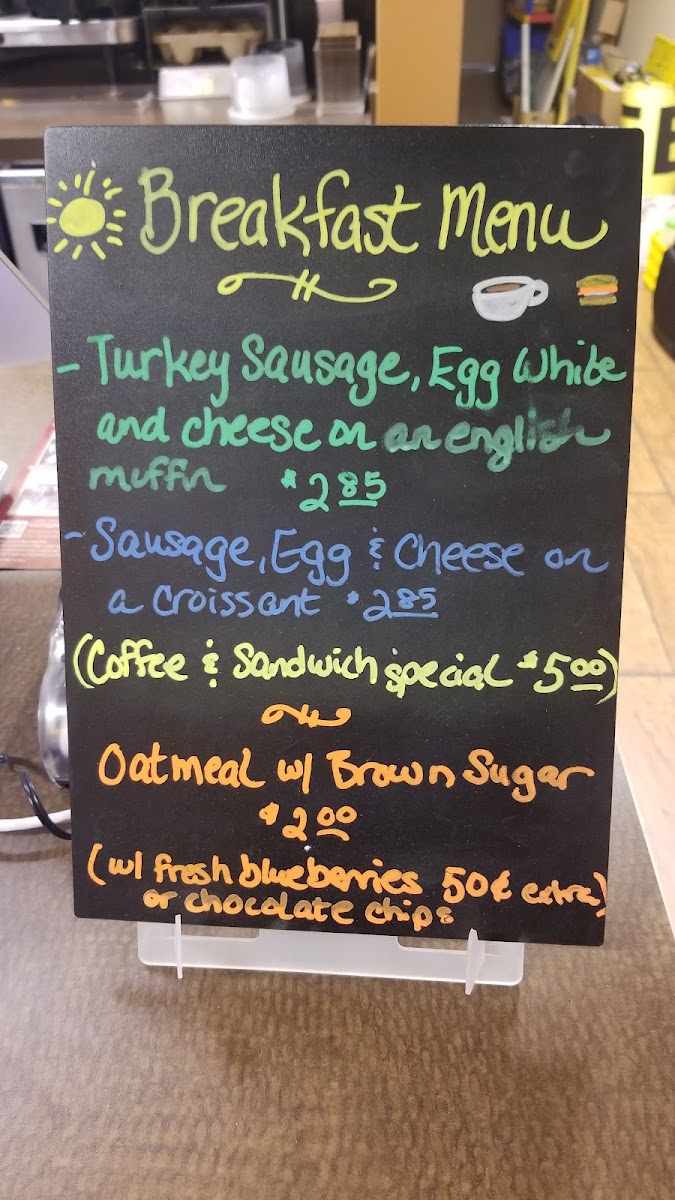 Breakfast Menu
- Turkey Sausage, Egg White
and cheese on an english
muffin $2.85
- Sausage, Egg & Cheese on
a croissant $2.85
(Coffee & Sandwich special $5.00)
Oatmeal w/ Brown Sugar
$2.00
(w/ fresh blueberries 50¢ extra)
or chocolate chips